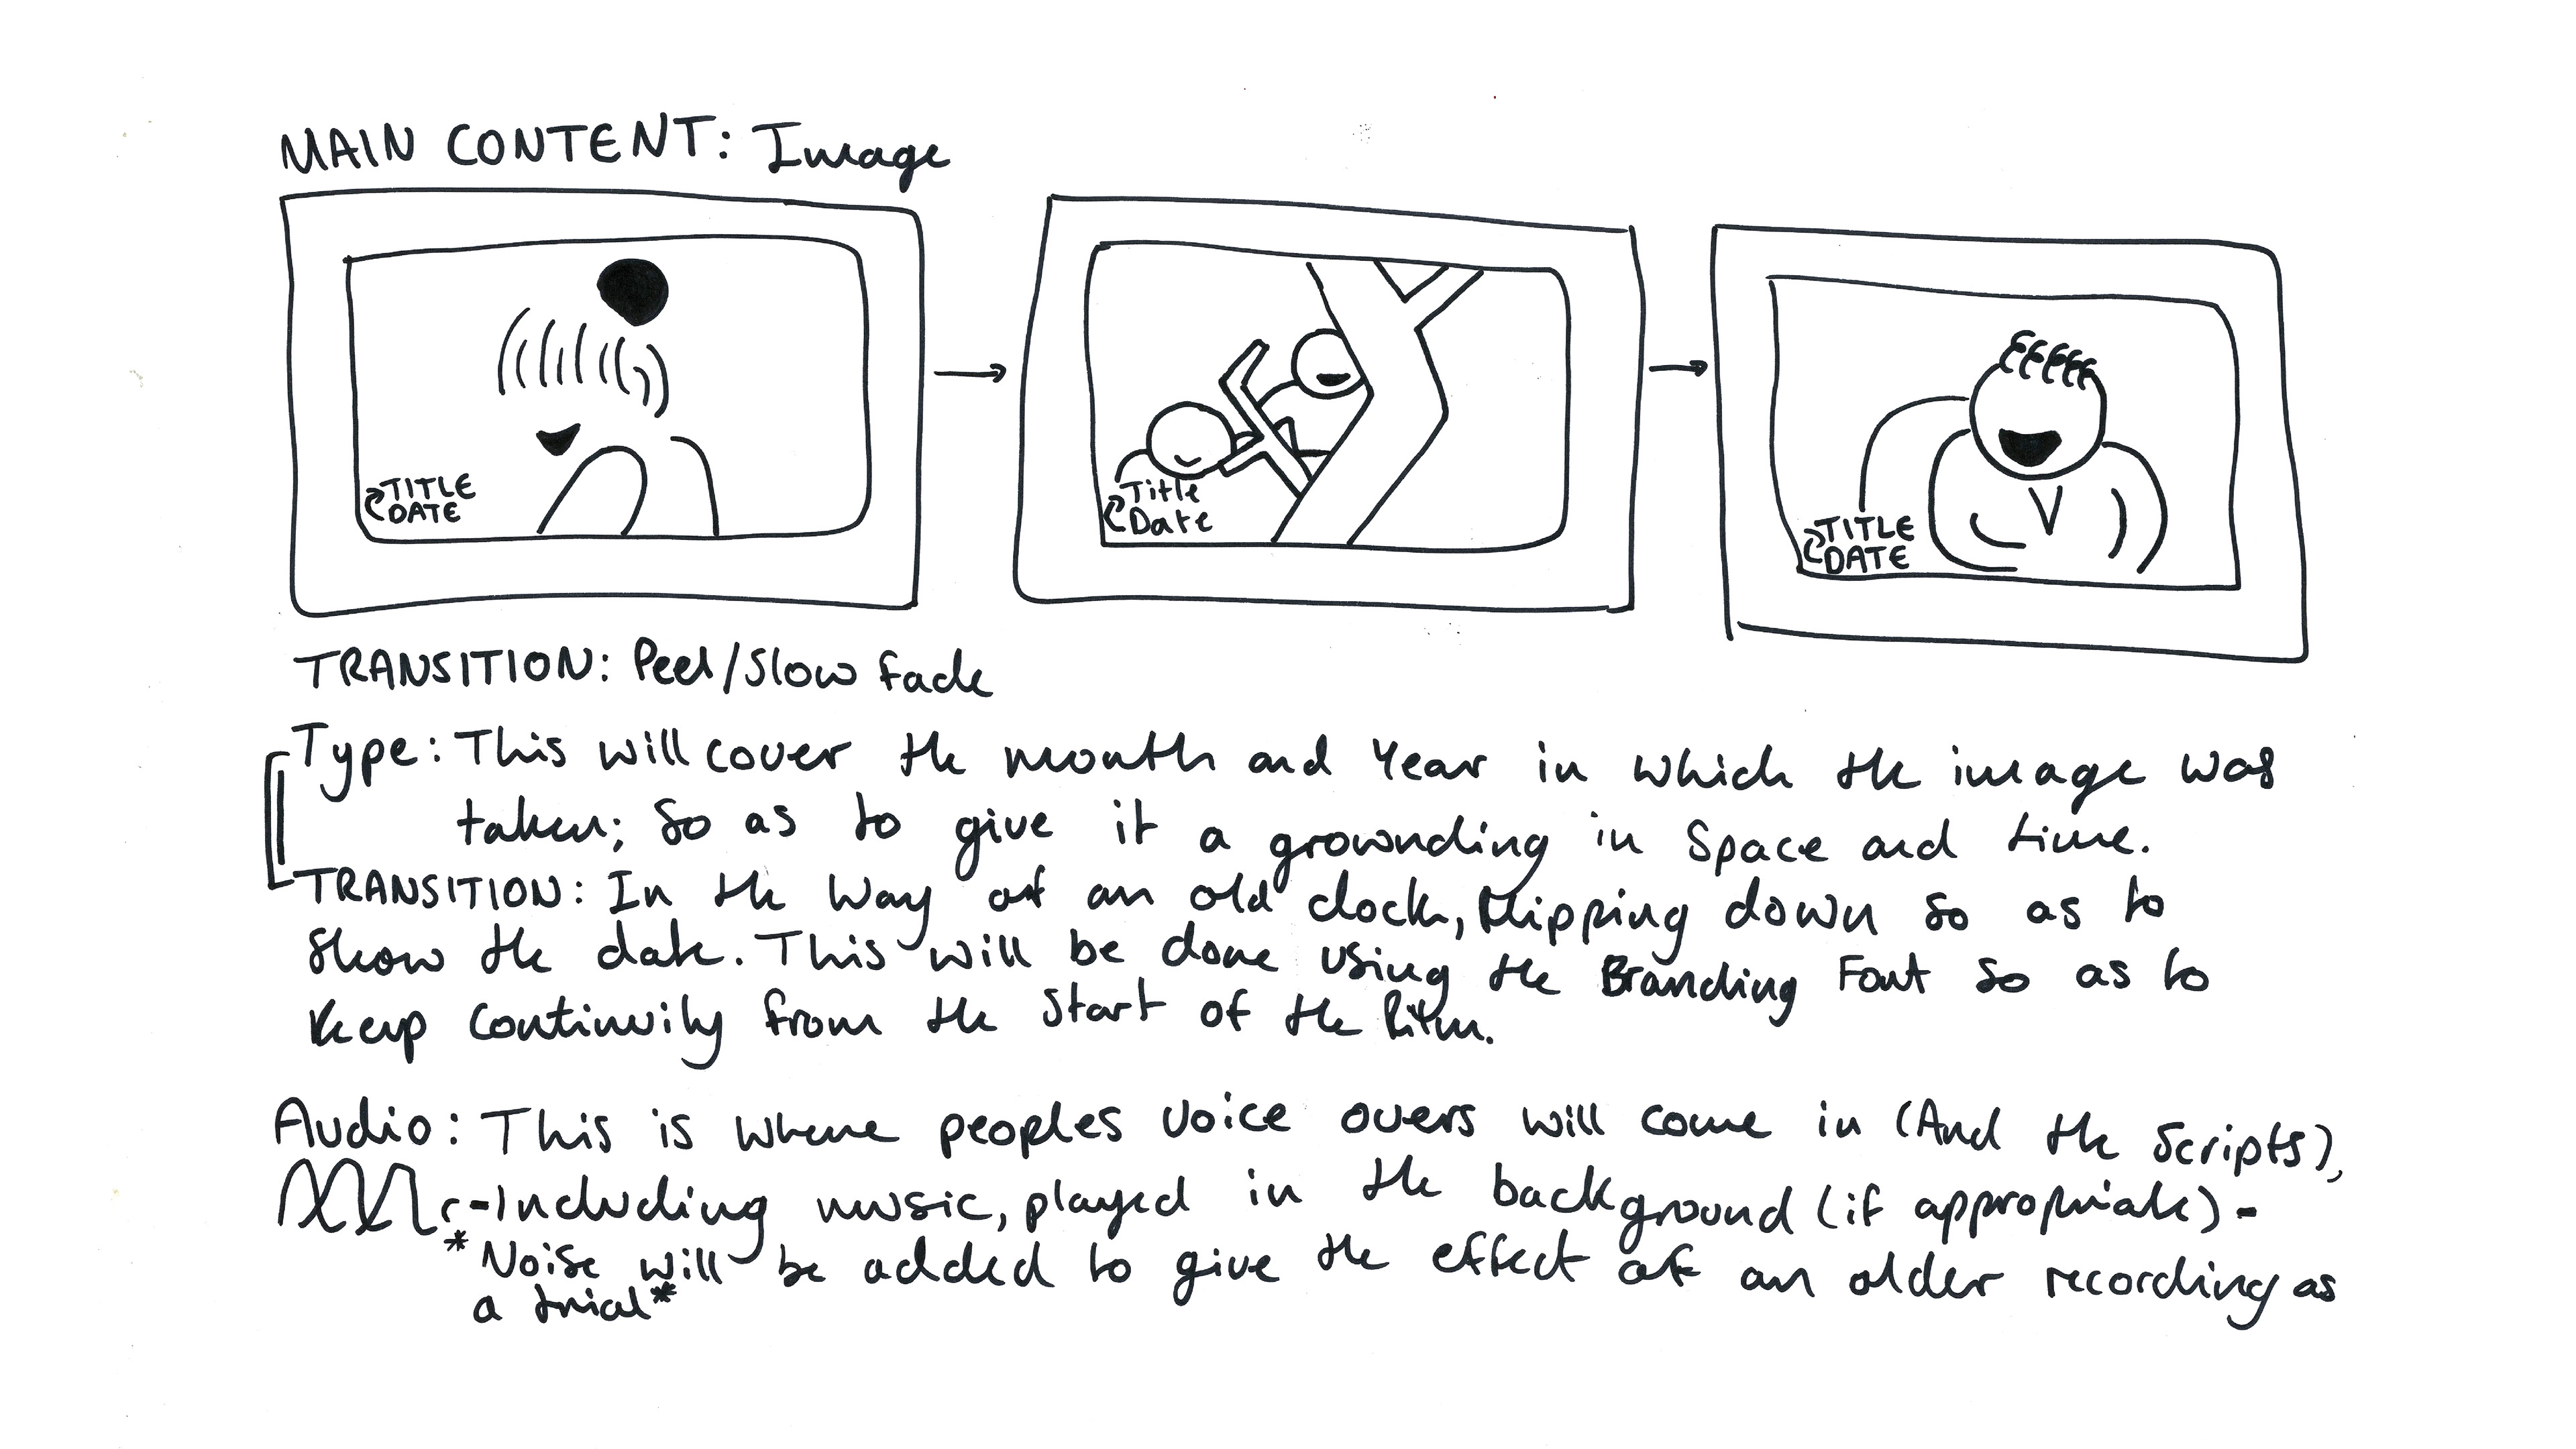 MAIN CONTENT: Image
TITLE
DATE
Title
Date
TITLE
DATE
TRANSITION: Peel/Slow fade
Type: This will cover the month and Year in which the image was
taken; So as to give it a grownding in Space and time.
TRANSITION: In the Way of an old clock, flipping down so as to
Show the date. This will be done using the Branding Font So as to
Keep Continuity from the Start of the film.
Audio: This is where peoples voice overs will come in (And the Scripts),
-Including music, played in the background (if appropriate)-
*Noise will be added to give the effect of an older recording as
a trial*